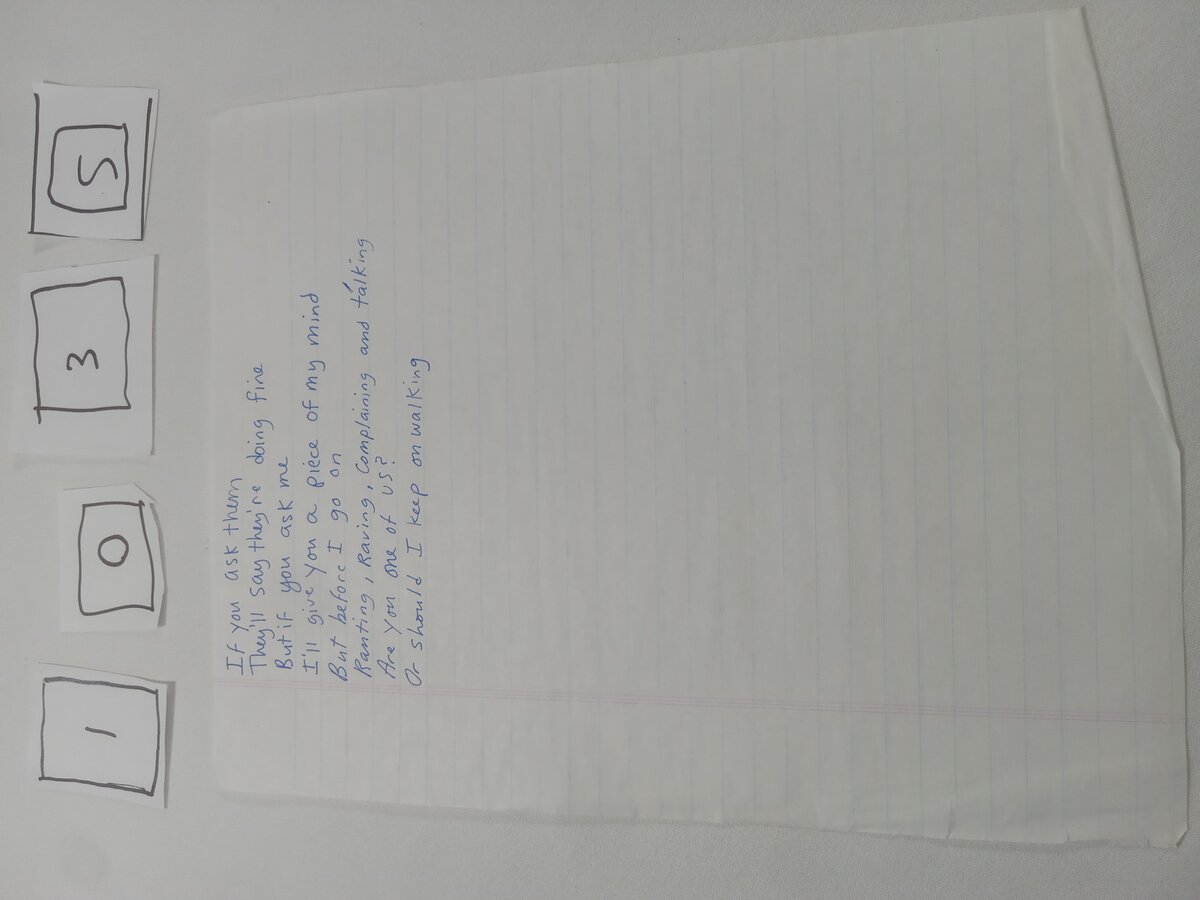 1 0 3 5
If you ask them
They'll say they're doing fine
But if you ask me
I'll give you a piece of my mind
But before I go on
Ranting, Raving, Complaining and talking
Are you one of us?
Or should I keep on walking